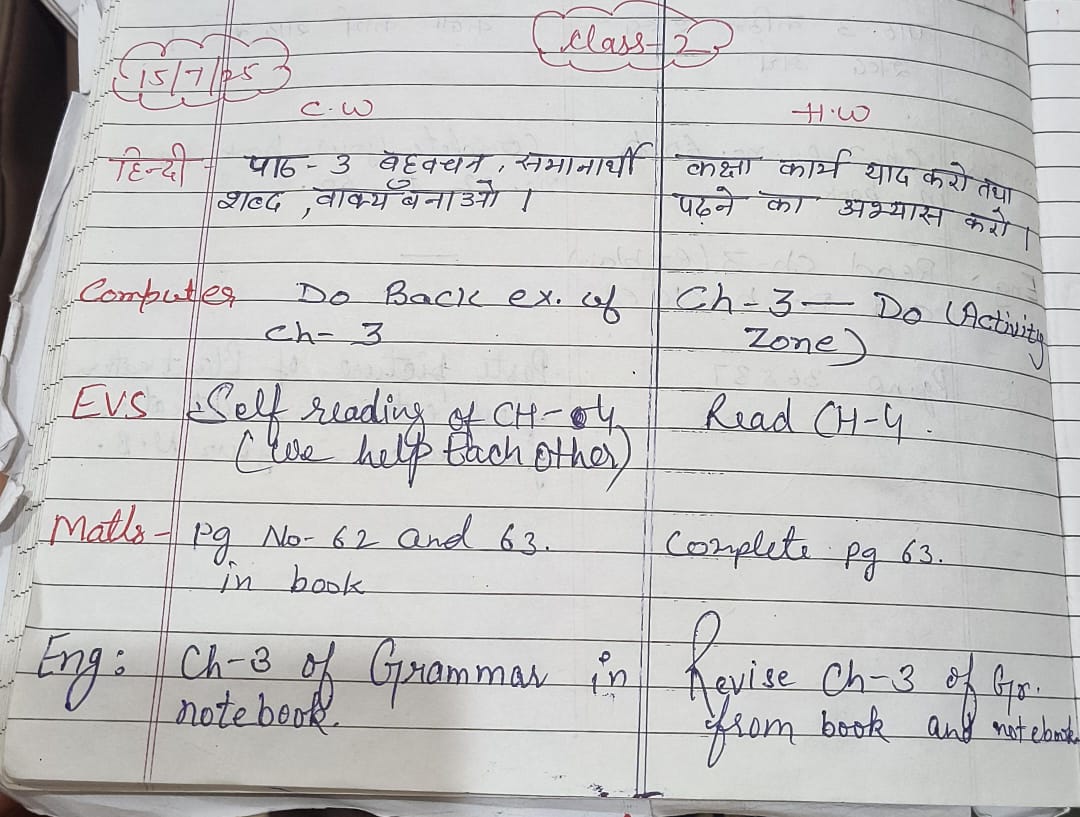 Class-2
15/7/25
C.W H.W
हिन्दी - पाठ - 3 बहुवचन, समानार्थी कक्षा कार्य याद करो तथा
शब्द, वाक्य बनाओ । पढ़ने का अभ्यास करो ।
Computer Do Back ex. of Ch-3 — Do (Activity
Ch-3 Zone)
EVS Self reading of CH-04 Read CH-4.
(We help Each other)
Maths - Pg No- 62 and 63. Complete pg 63.
in book
Eng: Ch-3 of Grammar in Revise Ch-3 of Gr.
notebook. from book and notebook